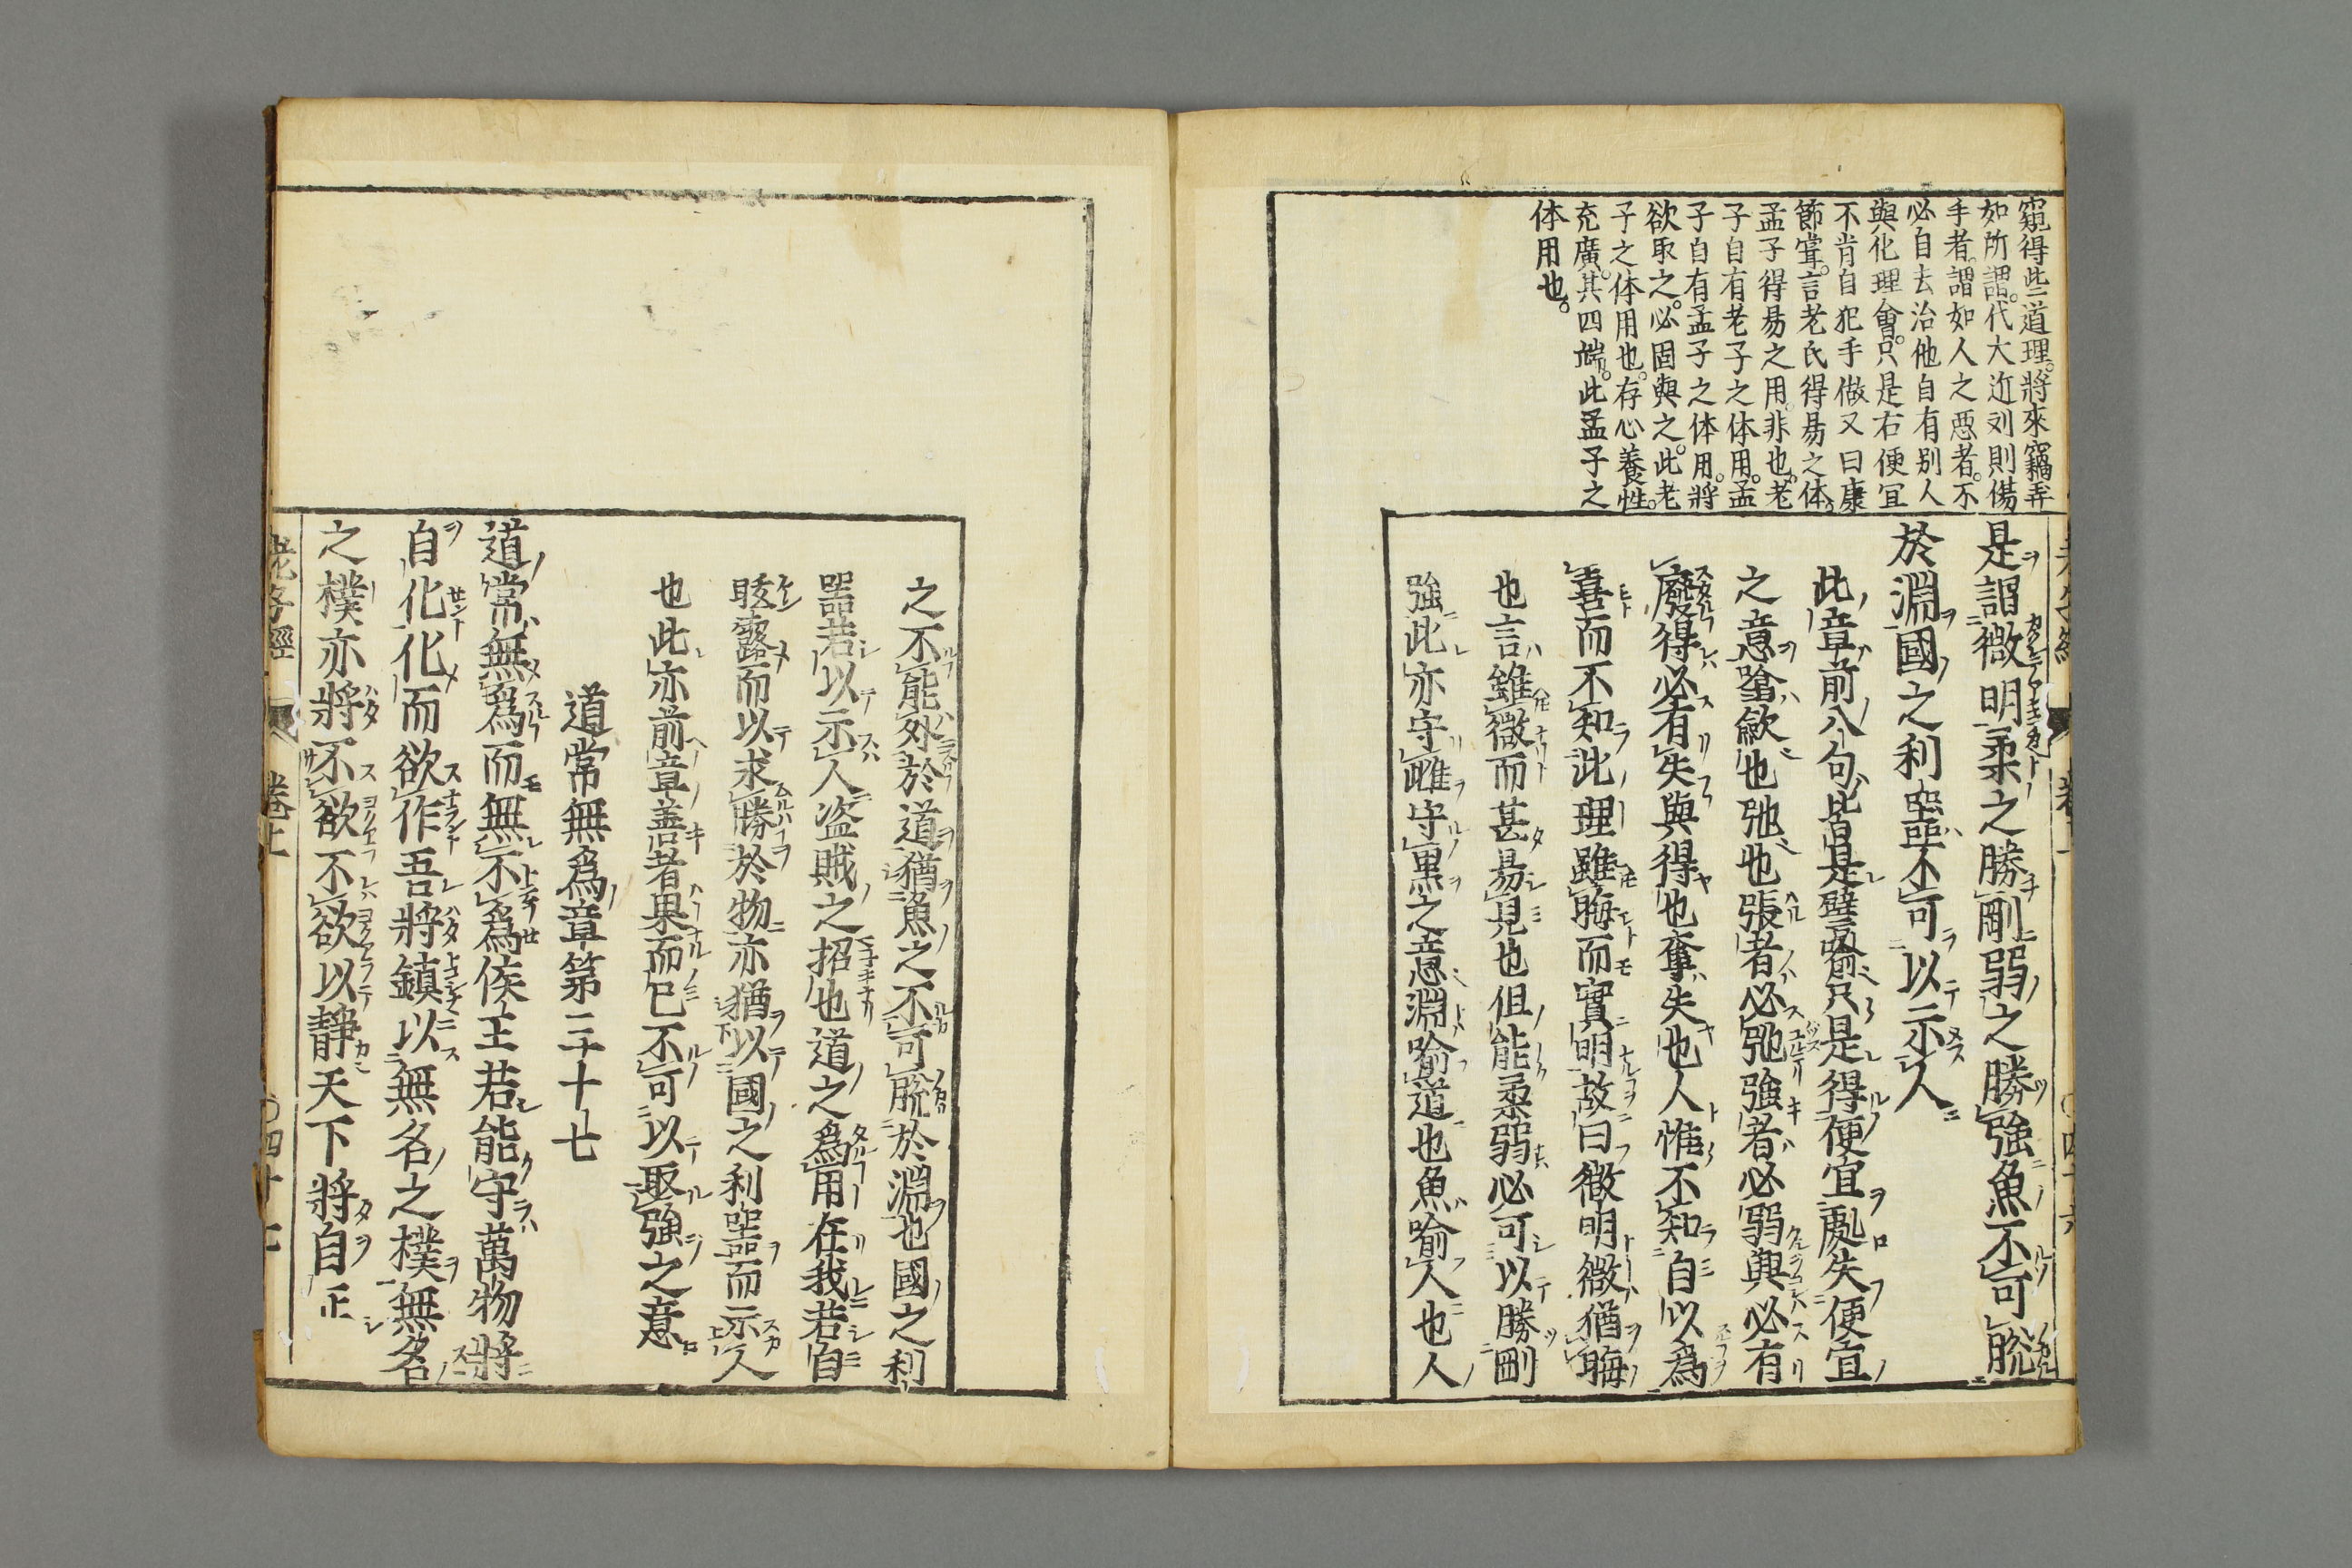 窺得此三道理。將來竊弄
如所謂。代大近刘則傷
手者。謂如人之惡者。不
必自去治他自有别人
與化理會。只是右便宜
不肯自犯手做又曰康
節嘗。言老氏得易之体。
孟子得易之用。非也。老
子自有老子之体用。孟
子自有孟子之体用。將
欲取之。必固與之。此老
子之体用也。存心養性。
充廣。其四端。此孟子之
体用也。
是謂微明柔之勝剛弱之勝強魚不可脫
於淵國之利噐不可以示人
此章前八句皆是譬喻只是得便宜處失便宜
之意噏歛也弛也張者必弛強者必弱與必有
廢得必有失與得也奪失也人惟不知自以為
喜而不知此理雖晦而實明故曰微明微猶晦
也言雖微而甚易見也但能柔弱必可以勝剛
強此亦守雌守黒之意淵喻道也魚喻人也人
老子經 卷上 〇四十六
之不能外於道猶魚之不可脫於淵也國之利
噐若以示人盗賊之招也道之爲用在我若自
眩露而以求勝於物亦猶以國之利噐而示人
也此亦前章善者果而已不可以取強之意
道常無爲章第三十七
道常無爲而無不爲侯王若能守萬物將
自化化而欲作吾將鎮以無名之樸無名
之樸亦將不欲不欲以靜天下將自正
老子經 卷上 〇四十七